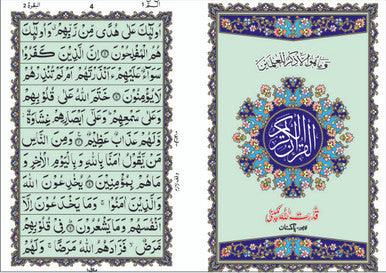 البقرة 2
4
الٓمّٓ 1
اُولٰٓئِكَ عَلٰى هُدًى مِّنْ رَّبِّهِمْ وَاُولٰٓئِكَ
هُمُ الْمُفْلِحُوْنَ ۝ اِنَّ الَّذِيْنَ كَفَرُوْا
سَوَآءٌ عَلَيْهِمْ ءَاَنْذَرْتَهُمْ اَمْ لَمْ تُنْذِرْهُمْ
لَا يُؤْمِنُوْنَ ۝ خَتَمَ اللّٰهُ عَلٰى قُلُوْبِهِمْ
وَعَلٰى سَمْعِهِمْ وَعَلٰٓى اَبْصَارِهِمْ غِشَاوَةٌ
وَّلَهُمْ عَذَابٌ عَظِيْمٌ ۝ وَمِنَ النَّاسِ
مَنْ يَّقُوْلُ اٰمَنَّا بِاللّٰهِ وَبِالْيَوْمِ الْاٰخِرِ وَ
مَا هُمْ بِمُؤْمِنِيْنَ ۝ يُخٰدِعُوْنَ اللّٰهَ
وَالَّذِيْنَ اٰمَنُوْا وَمَا يَخْدَعُوْنَ اِلَّآ
اَنْفُسَهُمْ وَمَا يَشْعُرُوْنَ ۝ فِيْ قُلُوْبِهِمْ
مَّرَضٌ فَزَادَهُمُ اللّٰهُ مَرَضًا وَلَهُمْ
وَمَا هُوَ اِلَّا ذِكْرٌ لِّلْعٰلَمِيْنَ
القرآن الكريم
قدرت اللہ کمپنی
لاہور۔ پاکستان